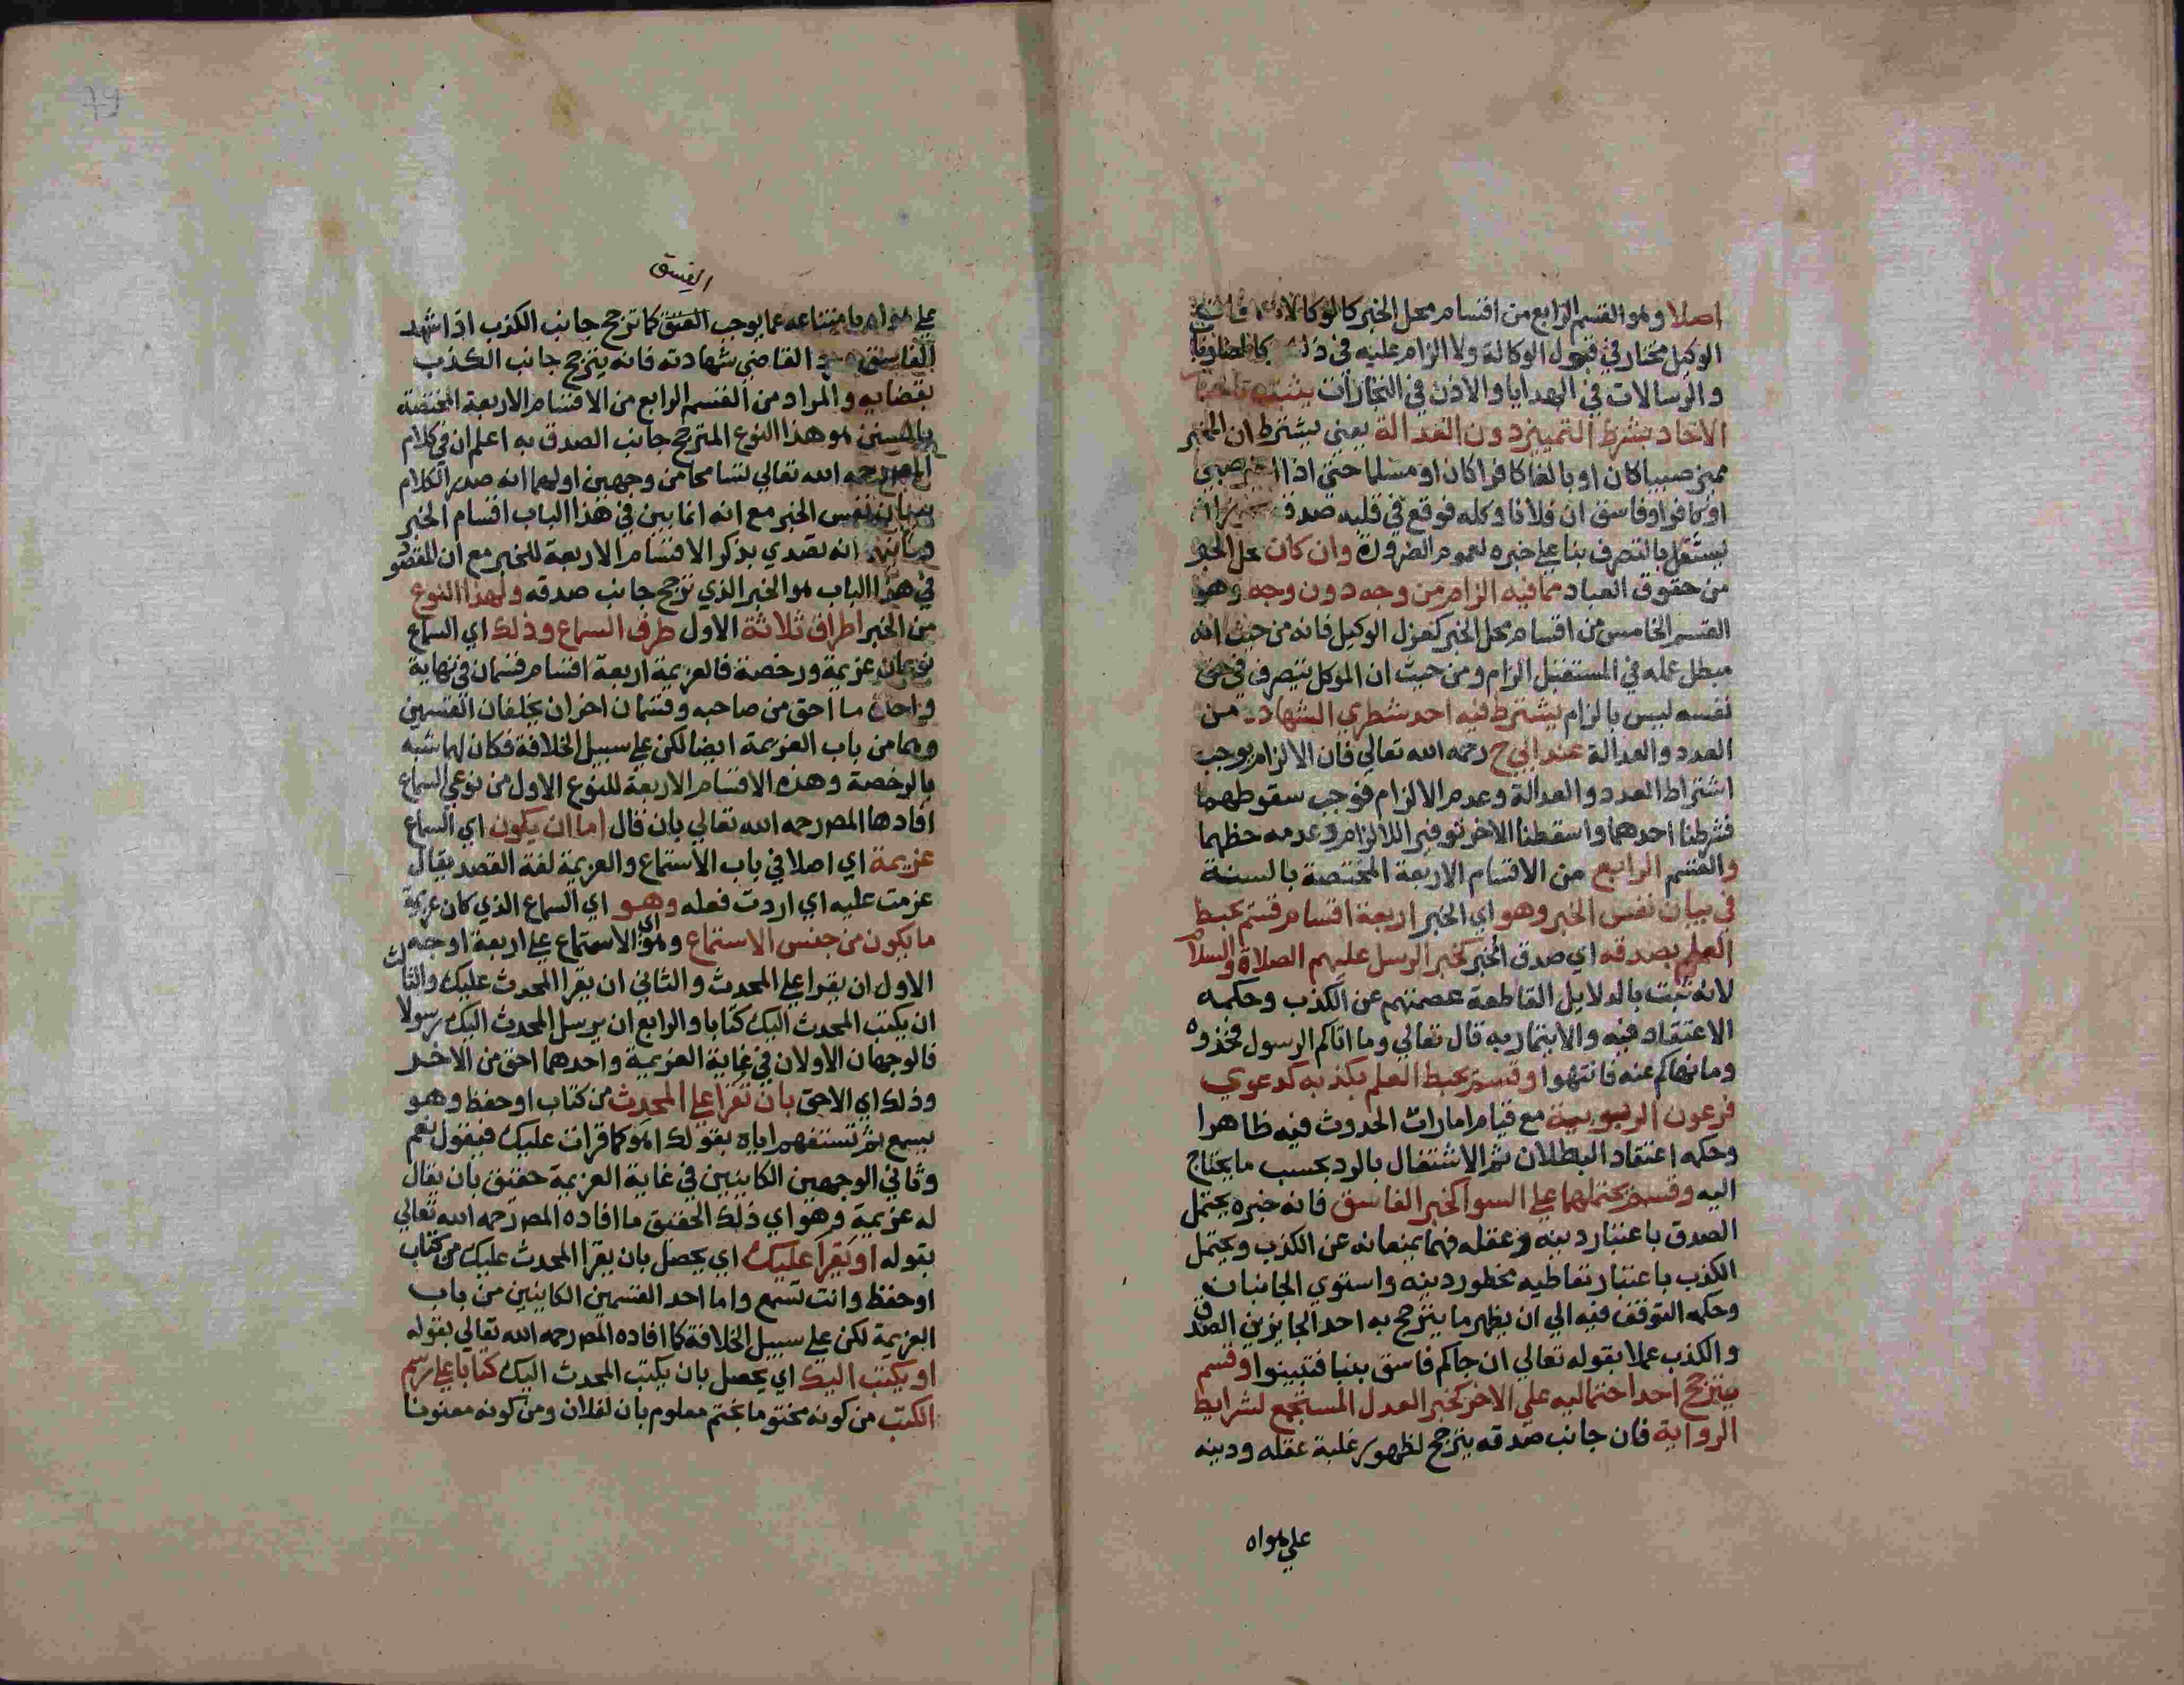 اصلا وهو القسم الرابع من اقسام محل الخبر كالوكالات
الوكيل مختار في قبول الوكالة ولا الزام عليه في ذلك كالمضاربات
والرسالات في الهدايا والاذن في التجارات يثبت
الاحاد بشرط التمييز دون العدالة يعني يشترط ان المخبر
مميز صبيا كان او بالغا كافرا كان او مسلما حتى اذا اخبر صبي
او كافرا وفاسق ان فلانا وكله فوقع في قلبه صدقه
يستقل بالتصرف بنا على خبره لعموم الضرورة وان كان محل الخبر
من حقوق العباد مما فيه الزام من وجه دون وجه وهو
القسم الخامس من اقسام محل الخبر كعزل الوكيل فانه من حيث انه
مبطل عمله في المستقبل الزام ومن حيث ان الموكل يتصرف في حق
نفسه ليس بالزام يشترط فيه احد شطري الشهادة من
العدد والعدالة عند ابي ح رحمه الله تعالي فان الالزام يوجب
اشتراط العدد والعدالة وعدم الالزام فوجب سقوطهما
فشرطنا احدهما واسقطنا الاخر توفيرا للالزام وعدمه حظهما
والقسم الرابع من الاقسام الاربعة المختصة بالسنة
في بيان نفس الخبر وهو اي الخبر اربعة اقسام قسم يحيط
العلم بصدقه اي صدق الخبر كخبر الرسل عليهم الصلاة والسلام
لانه ثبت بالدلايل القاطعة عصمتهم عن الكذب وحكمه
الاعتقاد فيه والايتمار به قال تعالي وما اتاكم الرسول فخذوه
وما نهاكم عنه فانتهوا وقسم يحيط العلم بكذبه كدعوي
فرعون الربوبية مع قيام امارات الحدوث فيه ظاهرا
وحكمه اعتقاد البطلان ثم الاشتغال بالرد بحسب ما يحتاج
اليه وقسم يحتملهما على السوا كخبر الفاسق فانه خبره يحتمل
الصدق باعتبار دينه وعقله فهما يمنعانه عن الكذب ويحتمل
الكذب باعتبار تعاطيه محظور دينه واستوي الجانبان
وحكمه التوقف فيه الي ان يظهر ما يترجح به احد الجايزين الصدق
والكذب عملا بقوله تعالي ان جاكم فاسق بنبا فتبينوا وقسم
يترجح احد احتماليه على الاخر كخبر العدل المستجمع لشرايط
الرواية فان جانب صدقه يترجح لظهور غلبة عقله ودينه
علي هواه
الفسق
علي هواه بامتناعه عما يوجب الفسق كما ترجح جانب الكذب اذا شهد
الفاسق ورد القاضي شهادته فانه يترجح جانب الكذب
بقضايه والمراد من القسم الرابع من الاقسام الاربعة المختصة
بالسنن هو هذا النوع المترجح جانب الصدق به اعلم ان في كلام
المصر رحمه الله تعالي تسامحا من وجهين اولهما انه صدر الكلام
ببيان نفس الخبر مع انه انما بين في هذا الباب اقسام الخبر
وثانيهما انه تصدي بذكر الاقسام الاربعة للخبر مع ان المقصود
في هذا الباب هو الخبر الذي ترجح جانب صدقه ولهذا النوع
من الخبر اطراف ثلاثة الاول طرف السماع وذلك اي السماع
نوعان عزيمة ورخصة فالعزيمة اربعة اقسام قسمان في نهاية
واحدهما احق من صاحبه وقسمان اخران يخلفان القسمين
وهما من باب العزيمة ايضا لكن على سبيل الخلافة فكان لهما شبه
بالرخصة وهذه الاقسام الاربعة للنوع الاول من نوعي السماع
افادها المصر رحمه الله تعالي بان قال اما ان يكون اي السماع
عزيمة اي اصلا في باب الاستماع والعزيمة لغة القصد يقال
عزمت عليه اي اردت فعله وهو اي السماع الذي كان عزيمة
ما يكون من جنس الاستماع وهو اي الاستماع على اربعة اوجه
الاول ان يقرا على المحدث والثاني ان يقرا المحدث عليك والثالث
ان يكتب المحدث اليك كتابا والرابع ان يرسل المحدث اليك رسولا
فالوجهان الاولان في غاية العزيمة واحدهما احق من الاخر
وذلك اي الاحق بان تقرا على المحدث من كتاب او حفظ وهو
يسمع ثم تستفهم اياه بقولك اهو كما قرات عليك فيقول نعم
وثاني الوجهين الكاينين في غاية العزيمة حقيق بان يقال
له عزيمة وهو اي ذلك الحقيق ما افاده المصر رحمه الله تعالي
بقوله او يقرا عليك اي يحصل بان يقرا المحدث عليك من كتاب
او حفظ وانت تسمع واما احد القسمين الكاينين من باب
العزيمة لكن على سبيل الخلافة كما افاده المصر رحمه الله تعالي بقوله
او يكتب اليك اي يحصل بان يكتب المحدث اليك كتابا على رسم
الكتب من كونه مختوما بختم معلوم بان لفلان ومن كونه معنونا